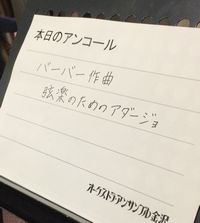 本日のアンコール
バーバー作曲
弦楽のためのアダージョ
オーケストラアンサンブル金沢